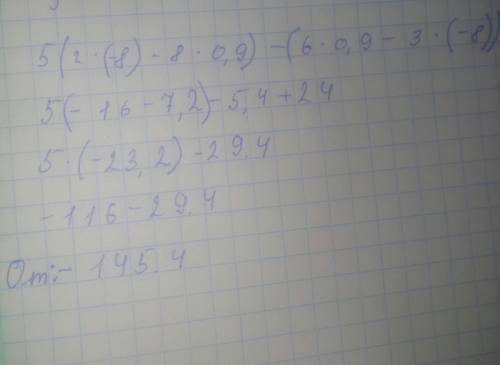 5(2·(-8)-8·0,9)-(6·0,9-3·(-8))
5(-16-7,2)-5,4+24
5·(-23,2)-29.4
-116-29.4
От:-145.4